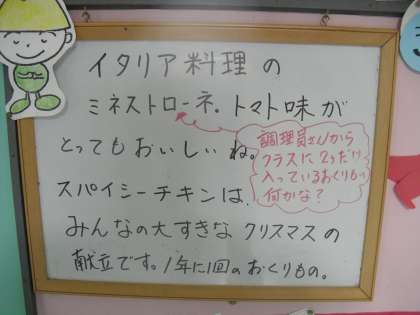 イタリア料理の
ミネストローネ.トマト味が
とってもおいしいね。
調理員さんから
クラスに2つだけ
入っているおくりもの
何かな?
スパイシーチキンは、
みんなの大すきなクリスマスの
献立です。1年に1回のおくりもの。